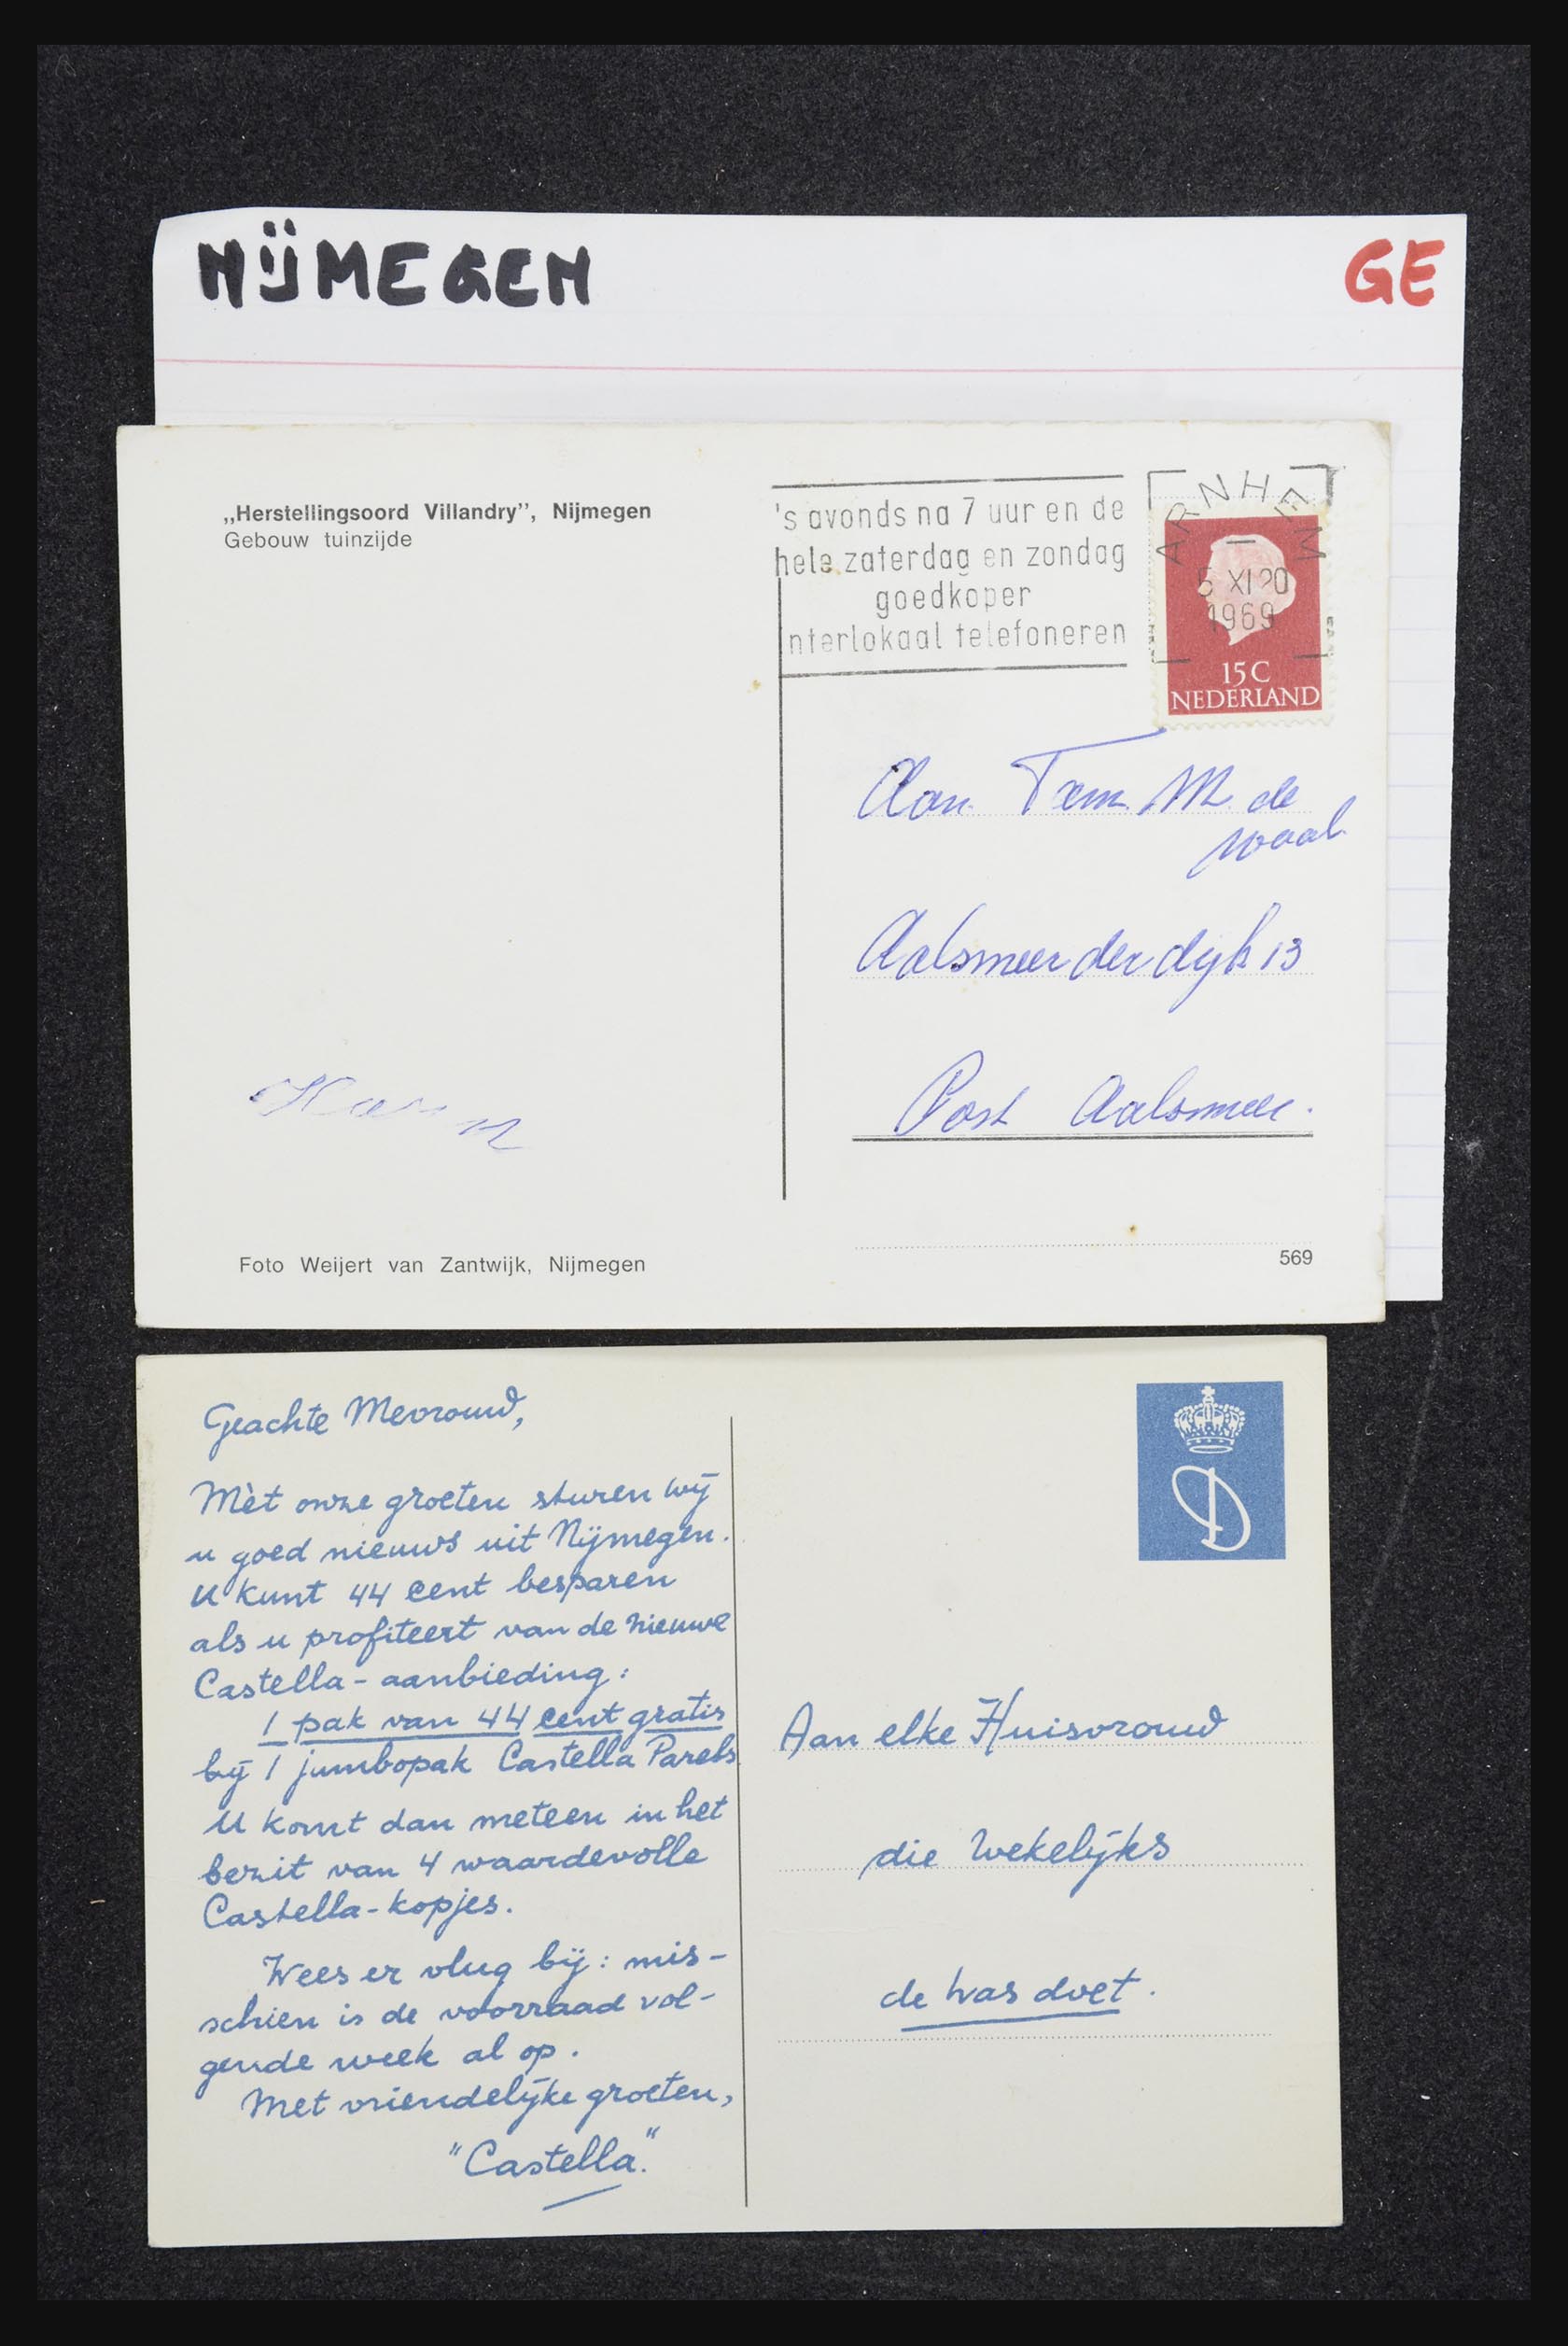 NIJMEGEN
GE
„Herstellingsoord Villandry”, Nijmegen
Gebouw tuinzijde
's avonds na 7 uur en de
hele zaterdag en zondag
goedkoper
nterlokaal telefoneren
ARNHEM
5 XI 20
1969
15C
NEDERLAND
Aan Fam. M. de
Waal
Aalsmeerderdijk 13
Post Aalsmeer.
Foto Weijert van Zantwijk, Nijmegen
569
Geachte Mevrouw,
Mèt onze groeten sturen wij
u goed nieuws uit Nijmegen.
U kunt 44 cent besparen
als u profiteert van de nieuwe
Castella-aanbieding:
1 pak van 44 cent gratis
bij 1 jumbopak Castella Parels
U komt dan meteen in het
bezit van 4 waardevolle
Castella-kopjes.
Wees er vlug bij: mis-
schien is de voorraad vol-
gende week al op.
Met vriendelijke groeten,
"Castella."
D
Aan elke Huisvrouw
die wekelijks
de was doet.